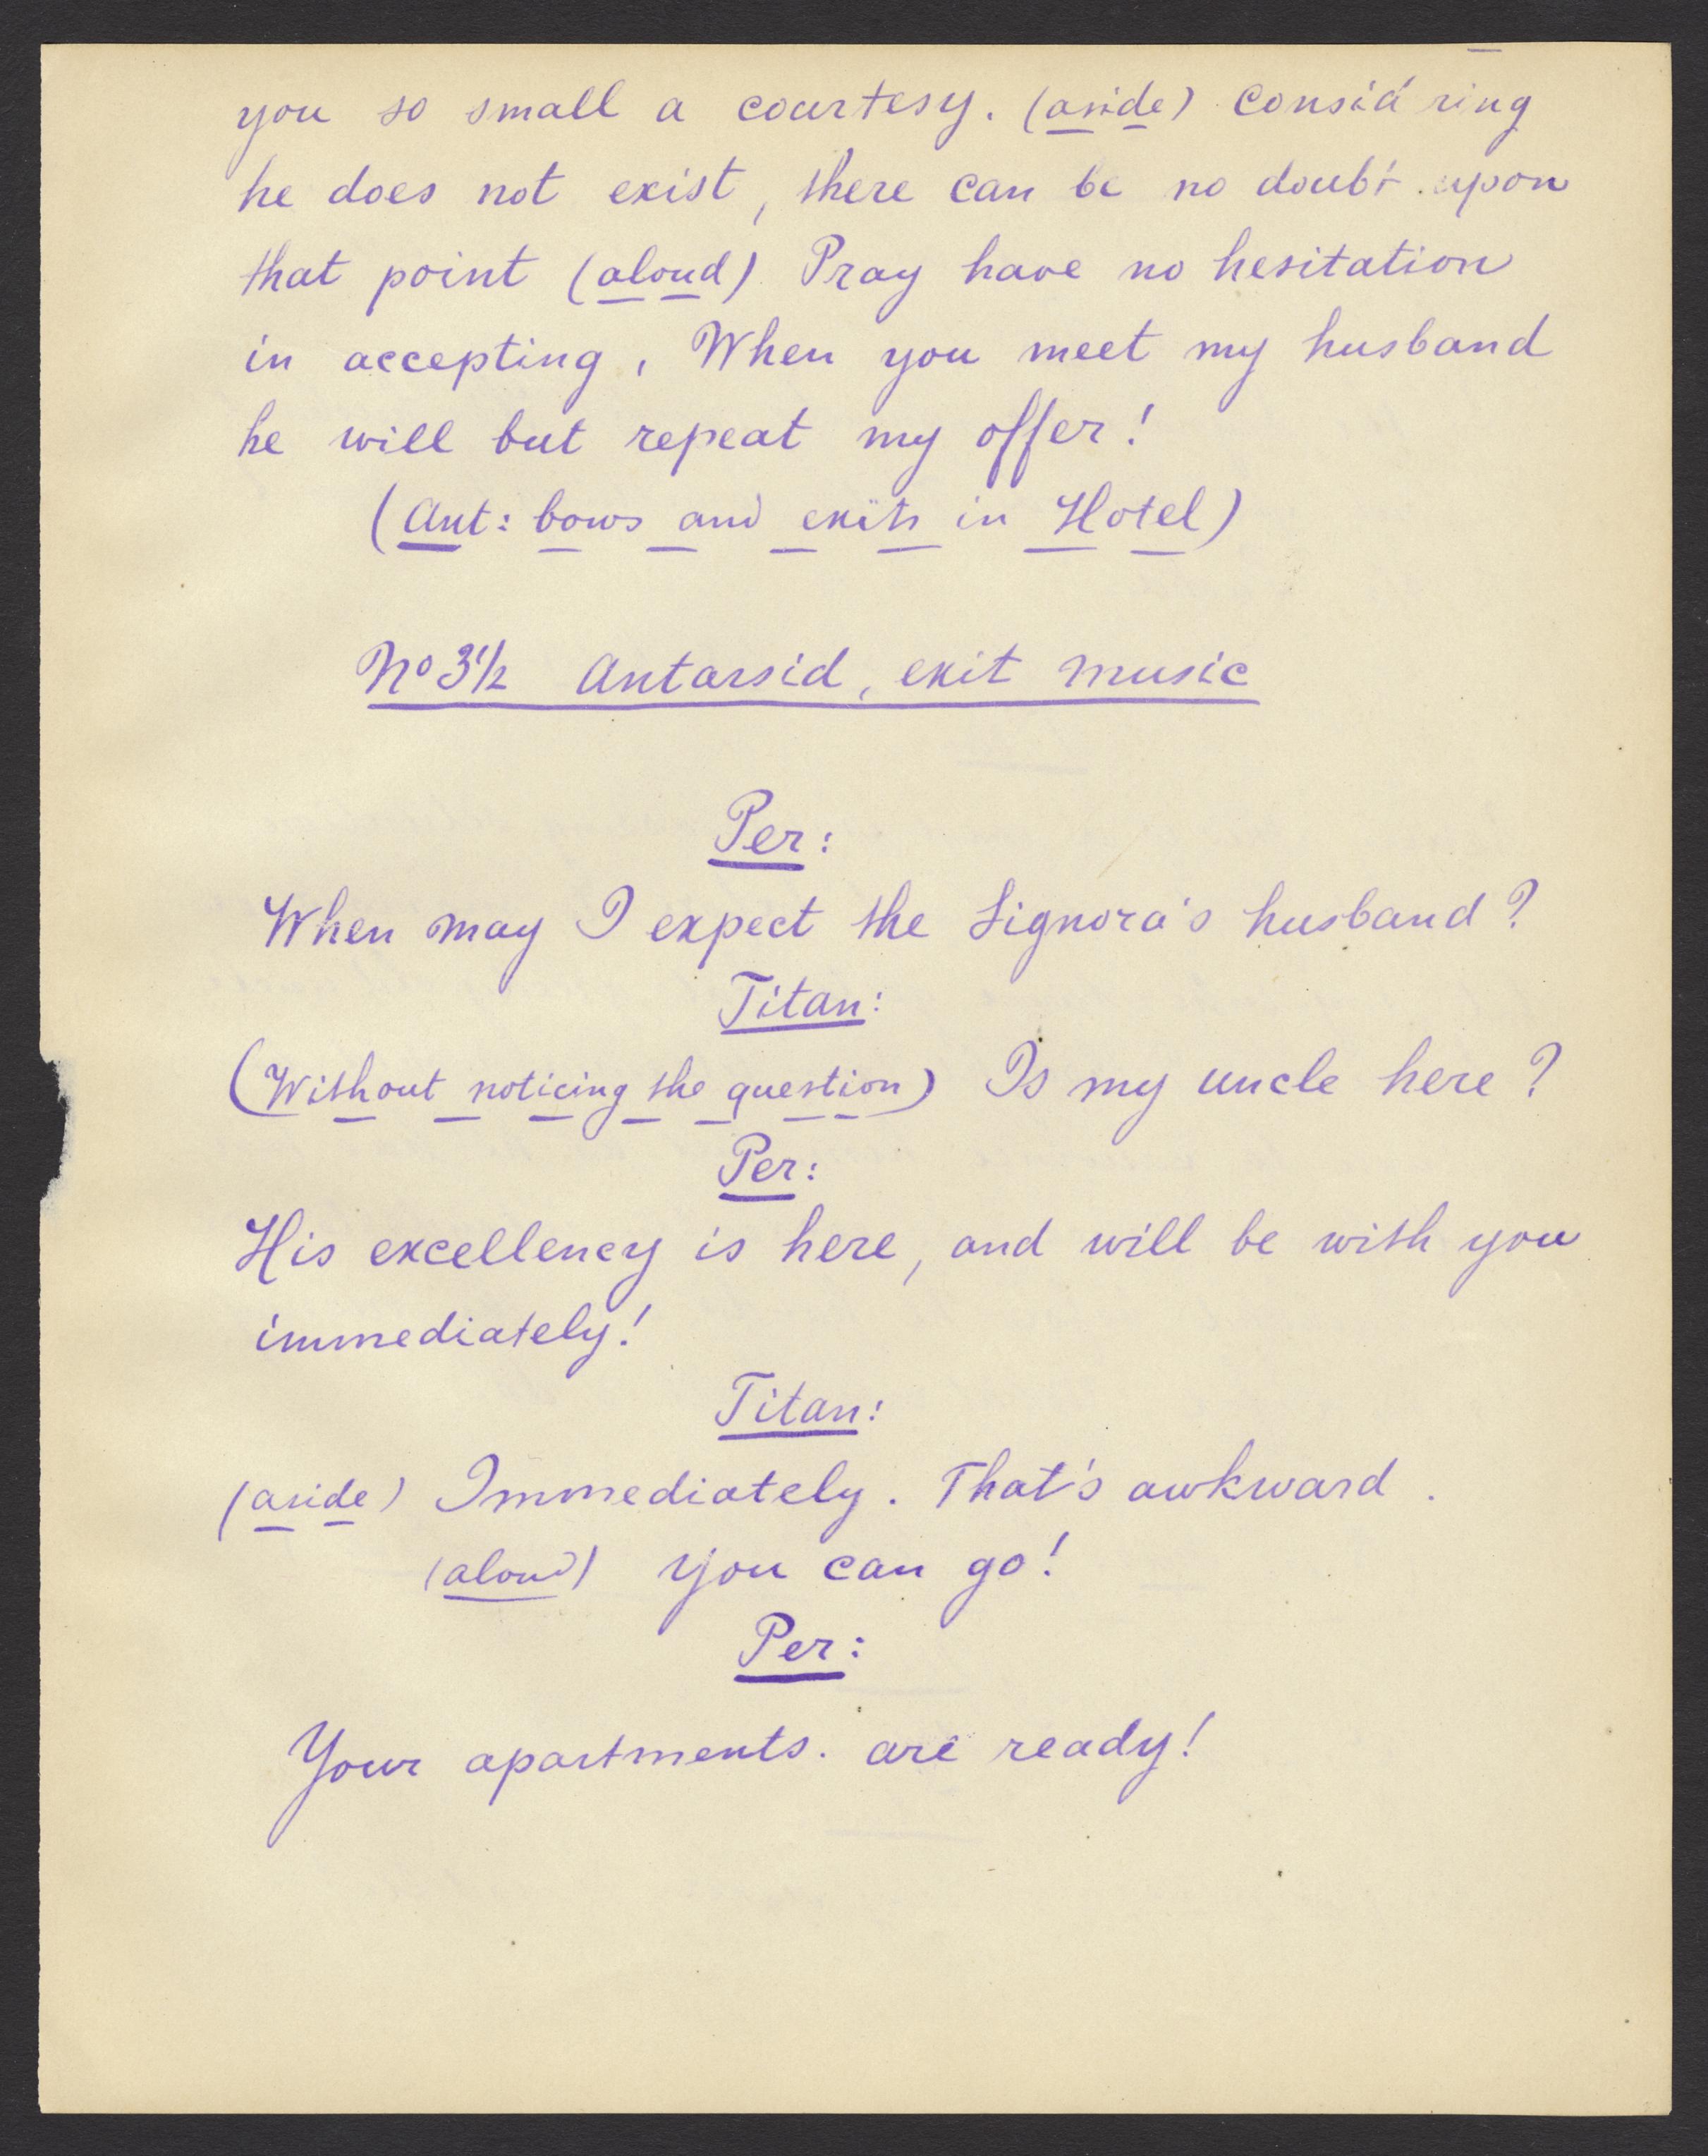 you so small a courtesy. (aside) Consid'ring
he does not exist, there can be no doubt upon
that point (aloud) Pray have no hesitation
in accepting, When you meet my husband
he will but repeat my offer!
(Ant: bows and exits in Hotel)
No 3 1/2 Antarsid, exit music
Per:
When may I expect the Signora's husband?
Titan:
(Without noticing the question) Is my uncle here?
Per:
His excellency is here, and will be with you
immediately!
Titan:
(aside) Immediately. That's awkward.
(aloud) You can go!
Per:
Your apartments. are ready!